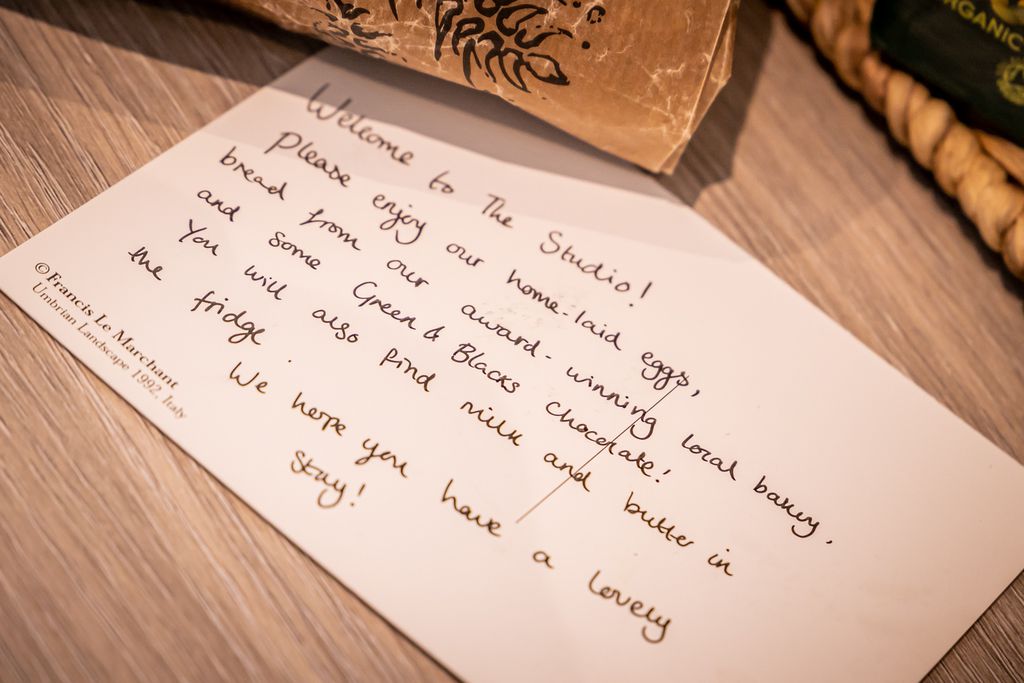 Welcome to The Studio!
Please enjoy our home-laid eggs,
bread from our award-winning local bakery,
and some Green & Blacks chocolate!
You will also find milk and butter in
the fridge.
We hope you have a lovely
stay!
© Francis Le Marchant
Umbrian Landscape 1992, Italy
ORGANIC